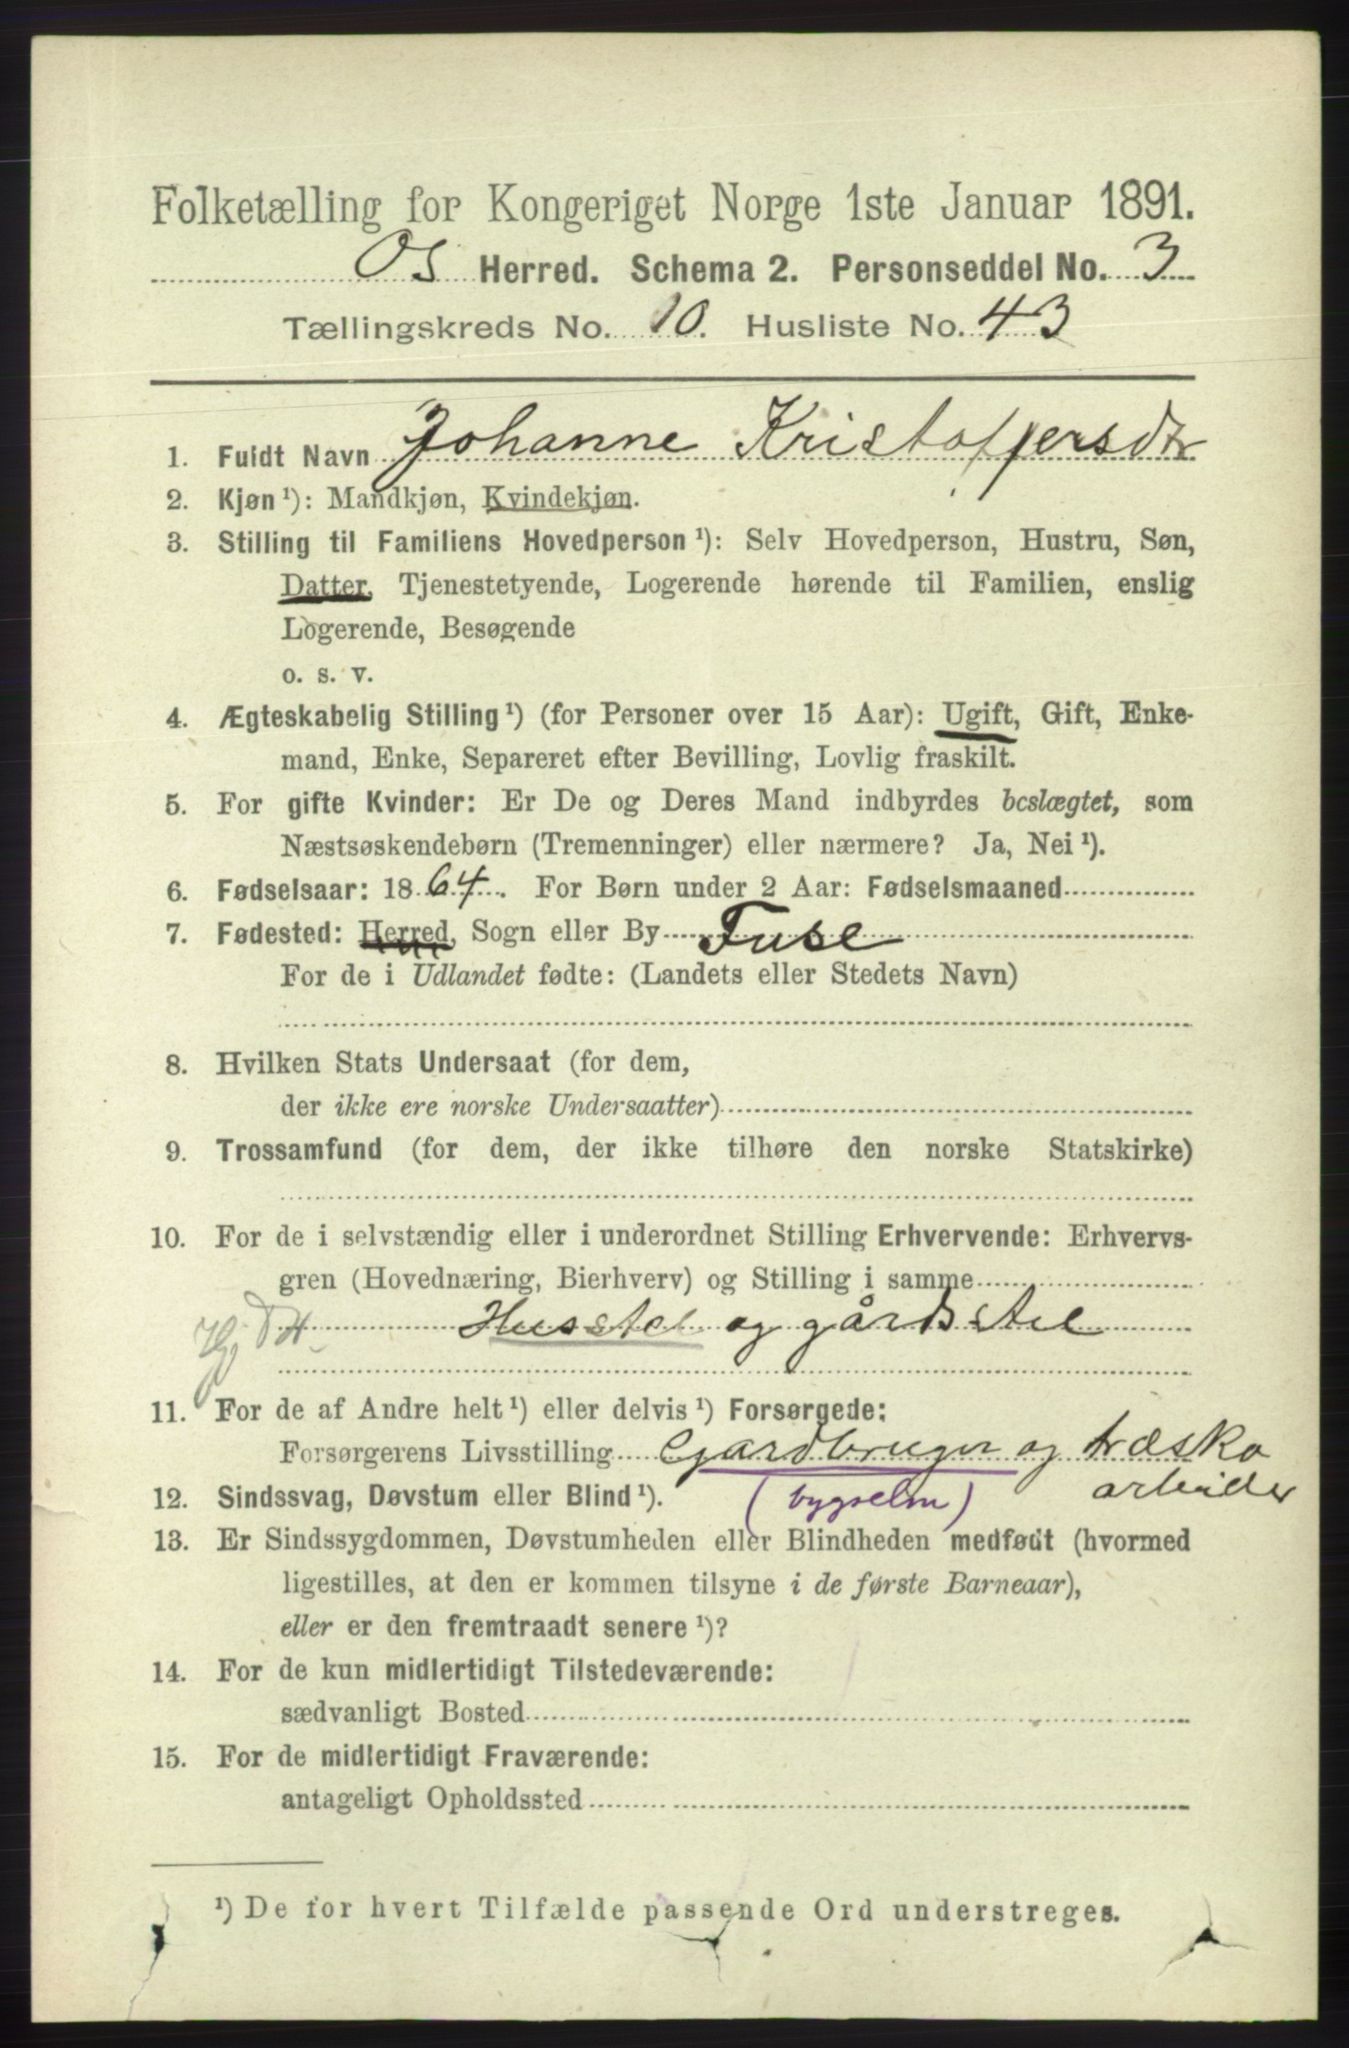 Folketælling for Kongeriget Norge 1ste Januar 1891.
Os Herred. Schema 2. Personseddel No. 3
Tællingskreds No. 10. Husliste No. 43
1. Fuldt Navn Johanne Kristoffersdtr
2. Kjøn¹): Mandkjøn, Kvindekjøn.
3. Stilling til Familiens Hovedperson¹): Selv Hovedperson, Hustru, Søn,
Datter, Tjenestetyende, Logerende hørende til Familien, enslig
Logerende, Besøgende
o. s. v.
4. Ægteskabelig Stilling¹) (for Personer over 15 Aar): Ugift, Gift, Enke-
mand, Enke, Separeret efter Bevilling, Lovlig fraskilt.
5. For gifte Kvinder: Er De og Deres Mand indbyrdes beslægtet, som
Næstsøskendebørn (Tremenninger) eller nærmere? Ja, Nei¹).
6. Fødselsaar: 1864. For Børn under 2 Aar: Fødselsmaaned
7. Fødested: Herred, Sogn eller By Fuse
For de i Udlandet fødte: (Landets eller Stedets Navn)
8. Hvilken Stats Undersaat (for dem,
der ikke ere norske Undersaatter)
9. Trossamfund (for dem, der ikke tilhøre den norske Statskirke)
10. For de i selvstændig eller i underordnet Stilling Erhvervende: Erhvervs-
gren (Hovednæring, Bierhverv) og Stilling i samme
Husstel og gårdstel
11. For de af Andre helt¹) eller delvis¹) Forsørgede:
Forsørgerens Livsstilling gardbruger og træsko
arbeider
12. Sindssvag, Døvstum eller Blind¹). (bygselm)
13. Er Sindssygdommen, Døvstumheden eller Blindheden medfødt (hvormed
ligestilles, at den er kommen tilsyne i de første Barneaar),
eller er den fremtraadt senere¹)?
14. For de kun midlertidigt Tilstedeværende:
sædvanligt Bosted
15. For de midlertidigt Fraværende:
antageligt Opholdssted
¹) De for hvert Tilfælde passende Ord understreges.